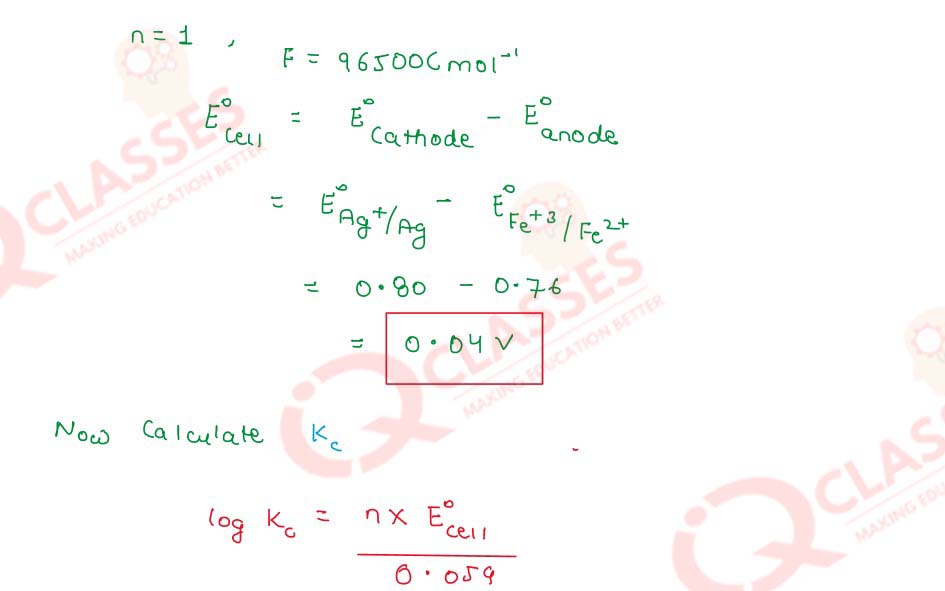 n = 1 , F = 96500C mol⁻¹
E°cell = E°cathode - E°anode
= E°Ag⁺/Ag - E°Fe⁺³/Fe²⁺
= 0.80 - 0.76
= 0.04 V
Now Calculate Kc
log Kc = n x E°cell
0.059
CLASSES
MAKING EDUCATION BETTER
CLASSES
MAKING EDUCATION BETTER
CLASS
MAKING EDUCATION